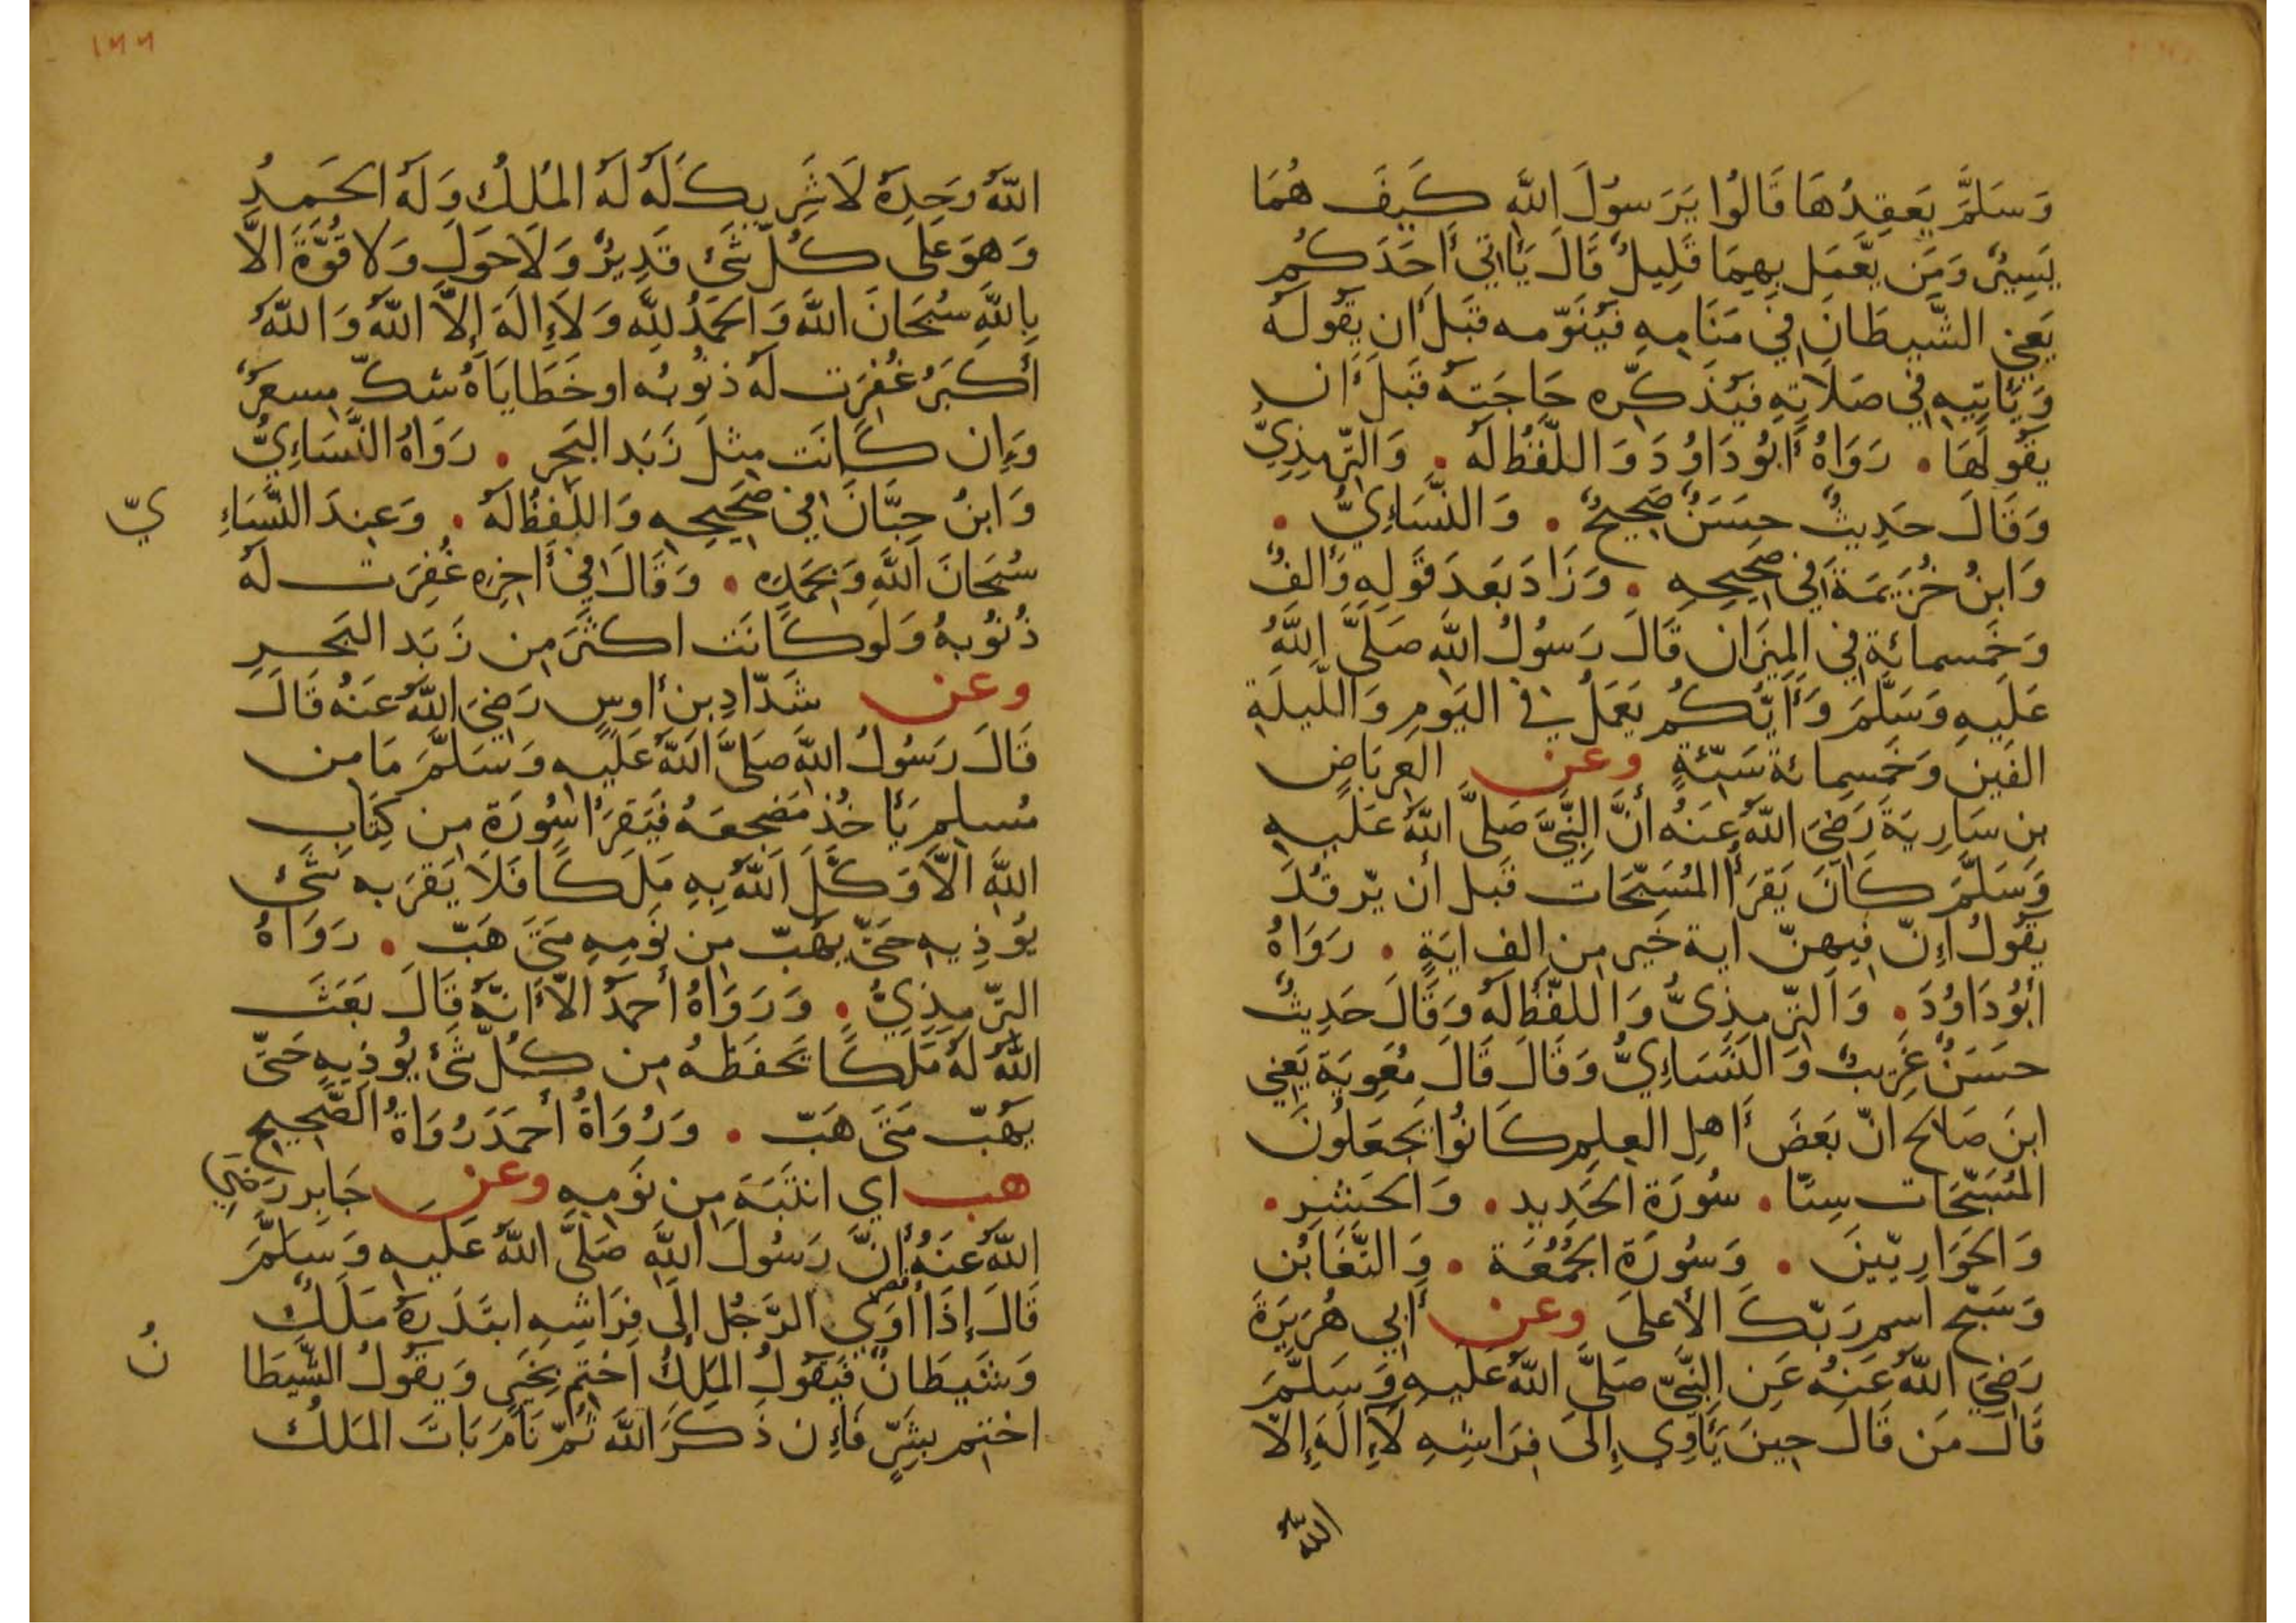 وَسَلَّمَ يَعقِدُهَا قَالُوا يَرَسوُلَ اللهِ كَيفَ هُمَا
يَسِيرٌ وَمَن يَعمَل بِهِمَا قَلِيلٌ قَالَ يَأتي أَحَدَكُم
يَعني الشَّيطَانَ في مَنَامِهِ فَيُنَوِّمه قَبلَ أن يَقُولَهُ
وَيَأتِيهِ في صَلَاتِهِ فَيُذَكِّره حَاجَتهُ قَبلَ أَن
يَقُولَهَا . رَوَاهُ أَبُو دَاوُدَ وَاللَّفظُ لَهُ . وَالتِّرمِذِيّ
وَقَالَ حَدِيثٌ حَسَنٌ صَحِيحٌ . وَالنَّسَاءِيُّ .
وَابنُ خُزَيمَةَ في صَحِيحِهِ . وَزَادَ بَعدَ قَولِهِ وَألفٌ
وَخَمسمائَةٍ في المِيزَان قَالَ رَسُولُ اللهِ صَلَّى اللهُ
عَلَيهِ وَسَلَّمَ وَأَيّكُم يَعمَلُ في اليَومِ وَاللَّيلَةِ
الفَين وَخَمسِمائة سَيّئةٍ وعن العِربَاضِ
بن سَارِيَةَ رَضيَ اللهُ عَنهُ أنَّ النَّبيَّ صَلَّى اللهُ عَلَيهِ
وَسَلَّمَ كَانَ يَقرَأُ المُسَبّحَات قَبل أن يّرقُدَ
يَقُولُ إنّ فيهنّ اية خَير من الف ايَةٍ . رَوَاهُ
أبُو دَاوُدَ . وَالتِّرمِذيُّ وَاللفّظُ لَهُ وَقَالَ حَدِيثٌ
حسَنٌ غَرِيبٌ وَالنَّسَاءِيُّ وَقَالَ قَالَ مُعَوِيَة يَعني
ابنَ صَالح انّ بَعَضَ أَهلِ العِلمِ كَانُوا يَجعَلُونَ
المُسَبّحَات ستّا . سُورَة الحَدِيد . وَالحَشرِ .
وَالحَوَارِيّينَ . وَسُورَة الجُمُعَة . وَالتَّغَابُن
وَسَبّح اسمِ رَبّكَ الأعلَى وعن أَبي هُرَيرَةَ
رَضيَ اللهُ عَنهُ عَن النَّبيّ صَلَّى اللهُ عَلَيهِ وَسَلَّمَ
قَالَ مَن قَالَ حِينَ يَأوِي إِلَى فِرَاشِهِ لَا إِلَهَ إِلَّا
الله
١٦٦
اللهُ وَحدَهُ لَا شَرِيكَ لَهُ لَهُ المُلكُ وَلَهُ الحَمدُ
وَهوَ عَلَى كُلِّ شَئ قَدِيرٌ وَلَا حَولَ وَلا قُوَّةَ الاَّ
بِاللهِ سُبحَانَ اللهَ وَالحَمدُ للهِ وَلَا إلَهَ إِلاَّ اللهُ وَاللهُ
أكبَرُ غُفِرَت لَهُ ذنُوبُه او خَطَايَاهُ شكّ مِسعَرٌ
وَإن كَانَت مِثلَ زَبَد البَحرِ . رَوَاهُ النَّسَاءِيُّ
وَابنُ حِبَّانَ في صَحِيحِهِ وَاللَّفظُ لَهُ . وَعِندَ النَّسَاءِيّ
سُبحَانَ اللهِ وَبِحَمدِه . وَقَالَ في أَخِره غُفِرَت لَهُ
ذُنُوبهُ وَلَو كَانَت اكثَرَ مِن زَبَدِ البَحرِ
وعن شَدّادِ بن أوسٍ رَضيَ اللهُ عَنهُ قَالَ
قَالَ رَسُولُ اللهِ صَلَّى اللهُ عَلَيهِ وَسَلَّمَ مَا من
مُسلِمٍ يَأخُذُ مَضجعَهُ فَيَقرَأ سُورَة مِن كِتَابِ
اللهِ الاَّ وَكَّلَ اللهُ بِهِ مَلَكًا فَلَا يَقرَبه شَئ
يُوذِيهِ حَتّى يَهُبّ مِن نَومِهِ مَتَى هَبّ . رَوَاهُ
التِّرمِذِيُّ . وَرَوَاهُ أحمَدُ الاَّ أَنّهُ قَالَ بَعَثَ
اللهُ لَهُ مَلَكًا يَحفَظهُ مِن كُلِّ شَئ يُوذِيهِ حَتّى
يَهُبّ مَتَى هَبّ . وَرُوَاةُ أحمَدَ رُوَاةُ الصَّحِيحِ
هب اي انتَبَهَ مِن نَومِهِ وعن جَابِرٍ رَضيَ
اللهُ عَنهُ أنَّ رَسُولَ اللهِ صَلَّى اللهُ عَلَيهِ وَسَلَّمَ
قَالَ إذَا أوَي الرَّجُل إلَى فِرَاشِهِ ابتَدَرَهُ مَلَكٌ
وَشَيطَانٌ فَيَقُولُ المَلَكُ اختِم بِخَيرٍ وَيَقُولُ الشَّيطَانُ
اختِم بِشَرٍّ فَإن ذَكَرَ اللهَ ثُمَّ نَامَ بَاتَ المَلَكُ